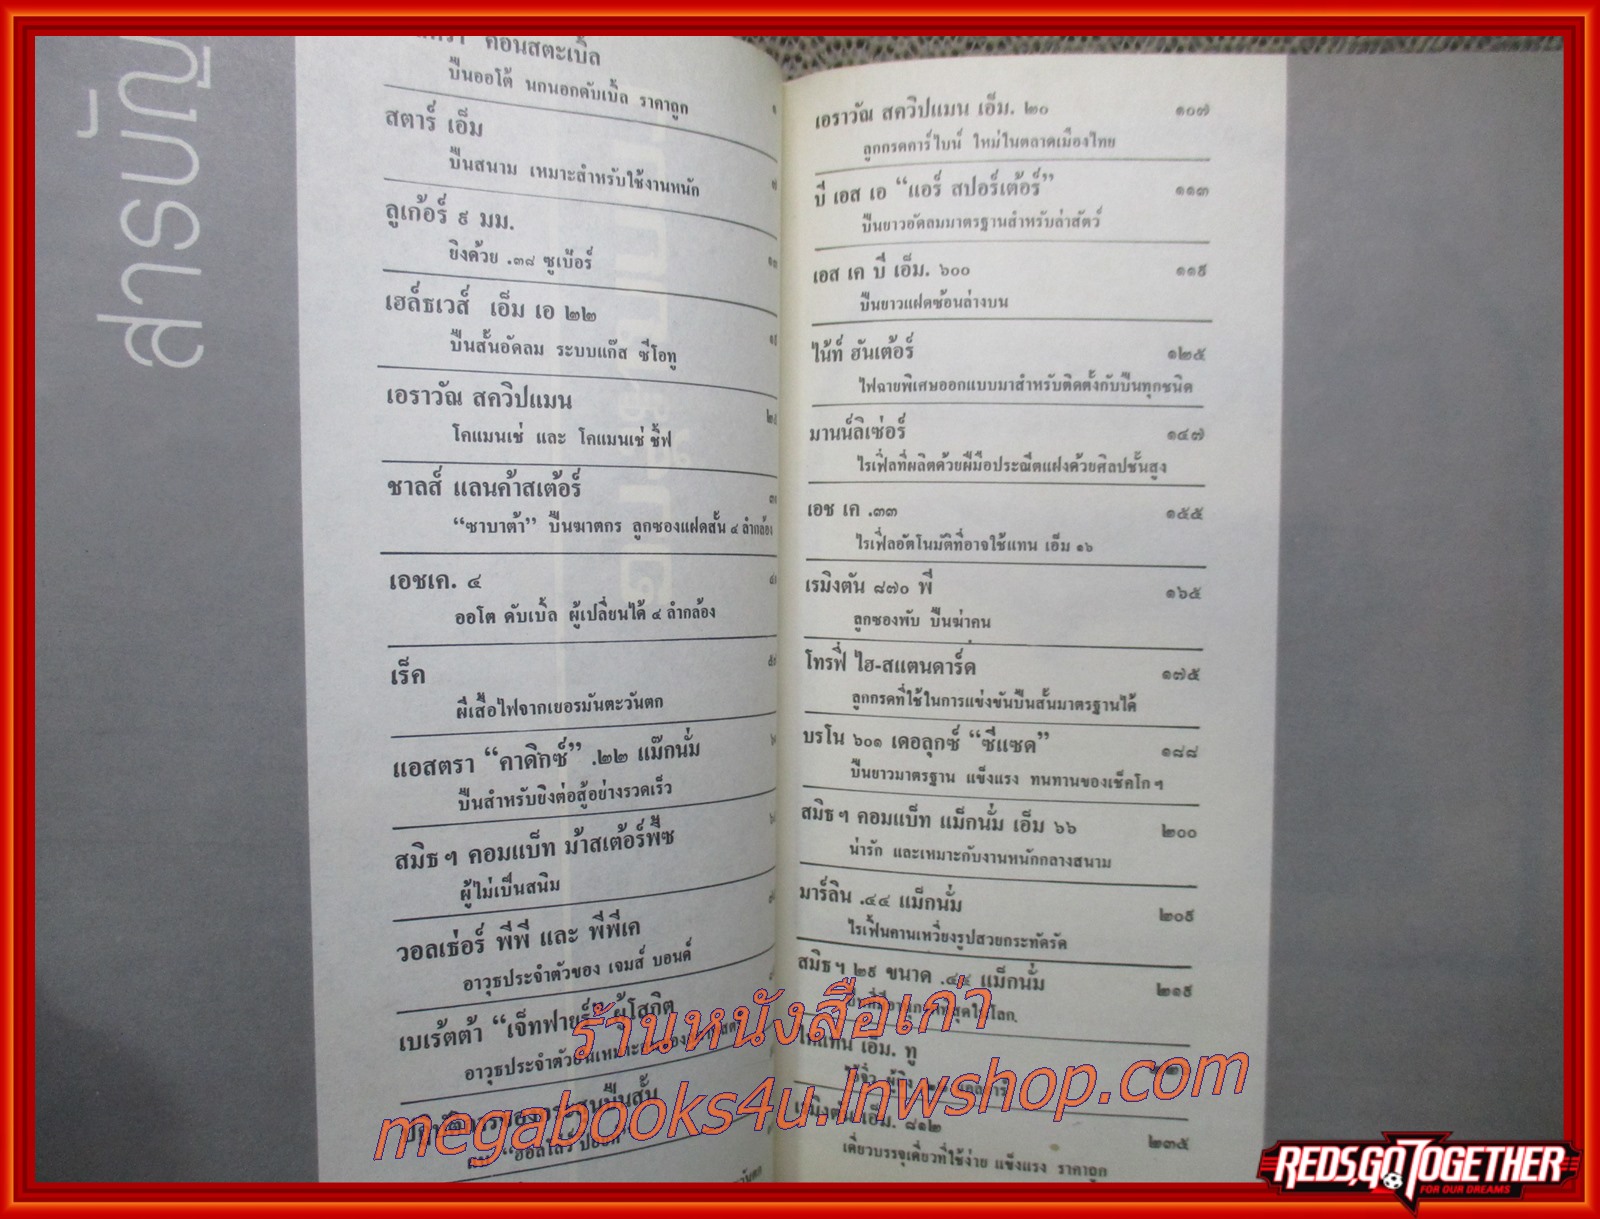 สารบัญ
คอนสตะเบิ้ล
ปืนออโต้ นกนอกดับเบิ้ล ราคาถูก ๑
สตาร์ เอ็ม
ปืนสนาม เหมาะสำหรับใช้งานหนัก ๗
ลูเก้อร์ ๙ มม.
ยิงด้วย .๓๘ ซูเป้อร์ ๑๓
เฮล์ธเวส์ เอ็ม เอ ๒๒
ปืนสั้นอัดลม ระบบแก๊ส ซีโอทู
เอราวัณ สควิปแมน
โคแมนเช่ และ โคแมนเช่ ชี้ฟ
ชาลส์ แลนค้าสเต้อร์
“ซาบาต้า” ปืนฆาตกร ลูกซองแฝดสั้น ๔ ลำกล้อง
เอชเค. ๔
ออโต ดับเบิ้ล ผู้เปลี่ยนได้ ๔ ลำกล้อง
เร็ค
ผีเสื้อไฟจากเยอรมันตะวันตก
แอสตรา “คาดิกซ์” .๒๒ แม๊กนั่ม
ปืนสำหรับยิงต่อสู้อย่างรวดเร็ว
สมิธฯ คอมแบ็ท ม้าสเต้อร์พีซ
ผู้ไม่เป็นสนิม
วอลเธ่อร์ พีพี และ พีพีเค
อาวุธประจำตัวของ เจมส์ บอนด์
เบเร้ตต้า “เจ็ทฟายร์” ผู้โสภิต
อาวุธประจำตัว
เอราวัณ สควิปแมน เอ็ม. ๒๐ ๑๐๗
ลูกกรดคาร์ไบน์ ใหม่ในตลาดเมืองไทย
บี เอส เอ “แอร์ สปอร์เต้อร์” ๑๑๓
ปืนยาวอัดลมมาตรฐานสำหรับล่าสัตว์
เอส เค บี เอ็ม. ๖๐๐ ๑๑๙
ปืนยาวแฝดซ้อนล่างบน
ไน้ท์ ฮันเต้อร์ ๑๒๕
ไฟฉายพิเศษออกแบบมาสำหรับติดตั้งกับปืนทุกชนิด
มานน์ลิเช่อร์ ๑๔๗
ไรเฟิลที่ผลิตด้วยฝีมือประณีตแฝงด้วยศิลปชั้นสูง
เอช เค .๓๓ ๑๕๕
ไรเฟิลอัตโนมัติที่อาจใช้แทน เอ็ม ๑๖
เรมิงตัน ๘๗๐ พี ๑๖๕
ลูกซองพับ ปืนฆ่าคน
โทรฟี่ ไฮ-สแตนดาร์ด ๑๗๕
ลูกกรดที่ใช้ในการแข่งขันปืนสั้นมาตรฐานได้
บรโน ๖๐๑ เดอลุกซ์ “ซีแซด” ๑๘๘
ปืนยาวมาตรฐาน แข็งแรง ทนทานของเช็คโกฯ
สมิธฯ คอมแบ็ท แม็กนั่ม เอ็ม ๖๖ ๒๐๐
น่ารัก และเหมาะกับงานหนักกลางสนาม
มาร์ลิน .๔๔ แม็กนั่ม ๒๐๙
ไรเฟิ้นคานเหวี่ยงรูปสวยกระทัดรัด
สมิธฯ ๒๙ ขนาด .๔๔ แม็กนั่ม ๒๑๙
เอ็ม. ทู
เรมิงตัน เอ็ม. ๘๑๒ ๒๓๕
เดี่ยวบรรจุเดี่ยวที่ใช้ง่าย แข็งแรง ราคาถูก
ร้านหนังสือเก่า
megabooks4u.lnwshop.com
REDS,GO TOGETHER
FOR OUR DREAMS